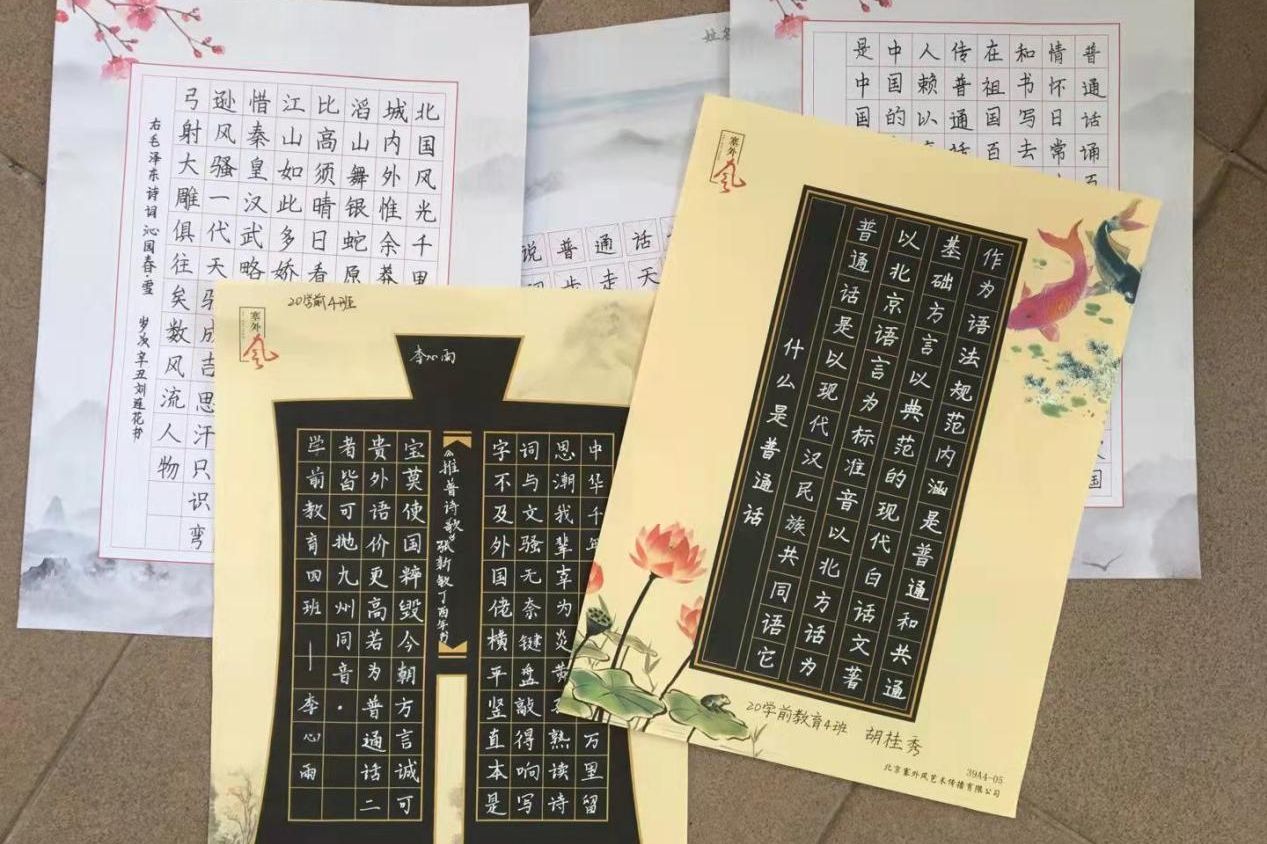 北国风光千里
城内外惟余莽
滔山舞银蛇原
比高须晴日看
江山如此多娇
惜秦皇汉武略
逊风骚一代天骄成吉思汗只识弯
弓射大雕俱往矣数风流人物
右毛泽东诗词沁园春·雪 岁次辛丑刘莲花书
姓名
说普通话
走天
普通话诵百
情怀日常
和书写去
在祖国百
传普通话
人赖以
中国的
是中国
国
塞外风
20学前4班
李心雨
中华千年 万里留
思潮我辈幸为炎黄 熟读诗
词与文骚无奈键盘敲得响写
字不及外国佬横平竖直本是
《推普诗歌》张新敏丁酉年书
宝莫使国粹毁今朝方言诚可
贵外语价更高若为普通话二
者皆可抛九州同音.
学前教育四班—李心雨
塞外风
什么是普通话
普通话是以现代汉民族共同语它
以北京语言为标准音以北方话为
基础方言以典范的现代白话文著
作为语法规范内涵是普通和共通
20学前教育4班 胡桂秀
39A4-05
北京塞外风艺术传播有限公司